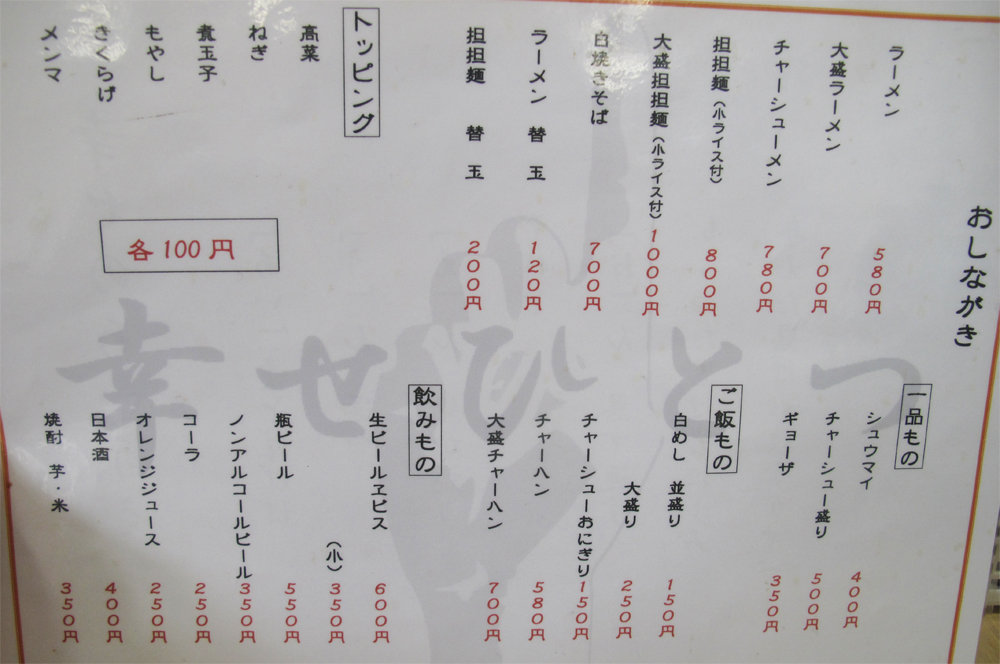 おしながき
ラーメン 580円
大盛ラーメン 700円
チャーシューメン 780円
担担麺（小ライス付） 800円
大盛担担麺（小ライス付） 1000円
白焼きそば 700円
ラーメン 替玉 120円
担担麺 替玉 200円
トッピング
高菜
ねぎ
煮玉子
もやし
きくらげ
メンマ
各100円
幸せひとつ
一品もの
シュウマイ 400円
チャーシュー盛り 500円
ギョーザ 350円
ご飯もの
白めし 並盛り 150円
大盛り 250円
チャーシューおにぎり 150円
チャーハン 580円
大盛チャーハン 700円
飲みもの
生ビールヱビス 600円
（小） 350円
瓶ビール 550円
ノンアルコールビール 350円
コーラ 250円
オレンジジュース 250円
日本酒 400円
焼酎 芋・米 350円